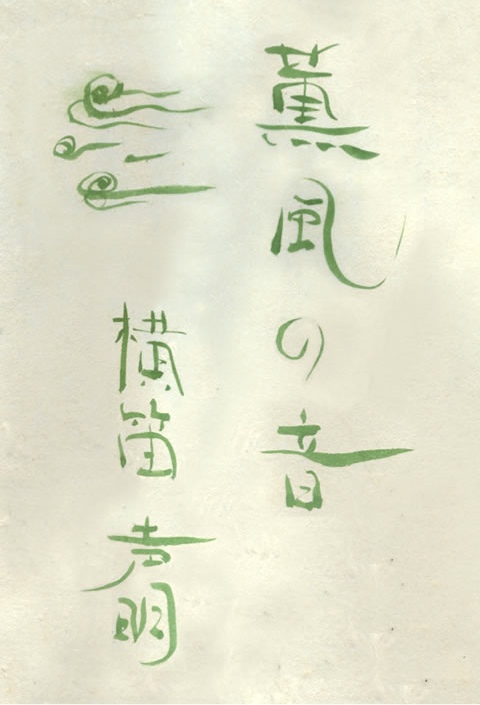 薫風の音
横笛 声明